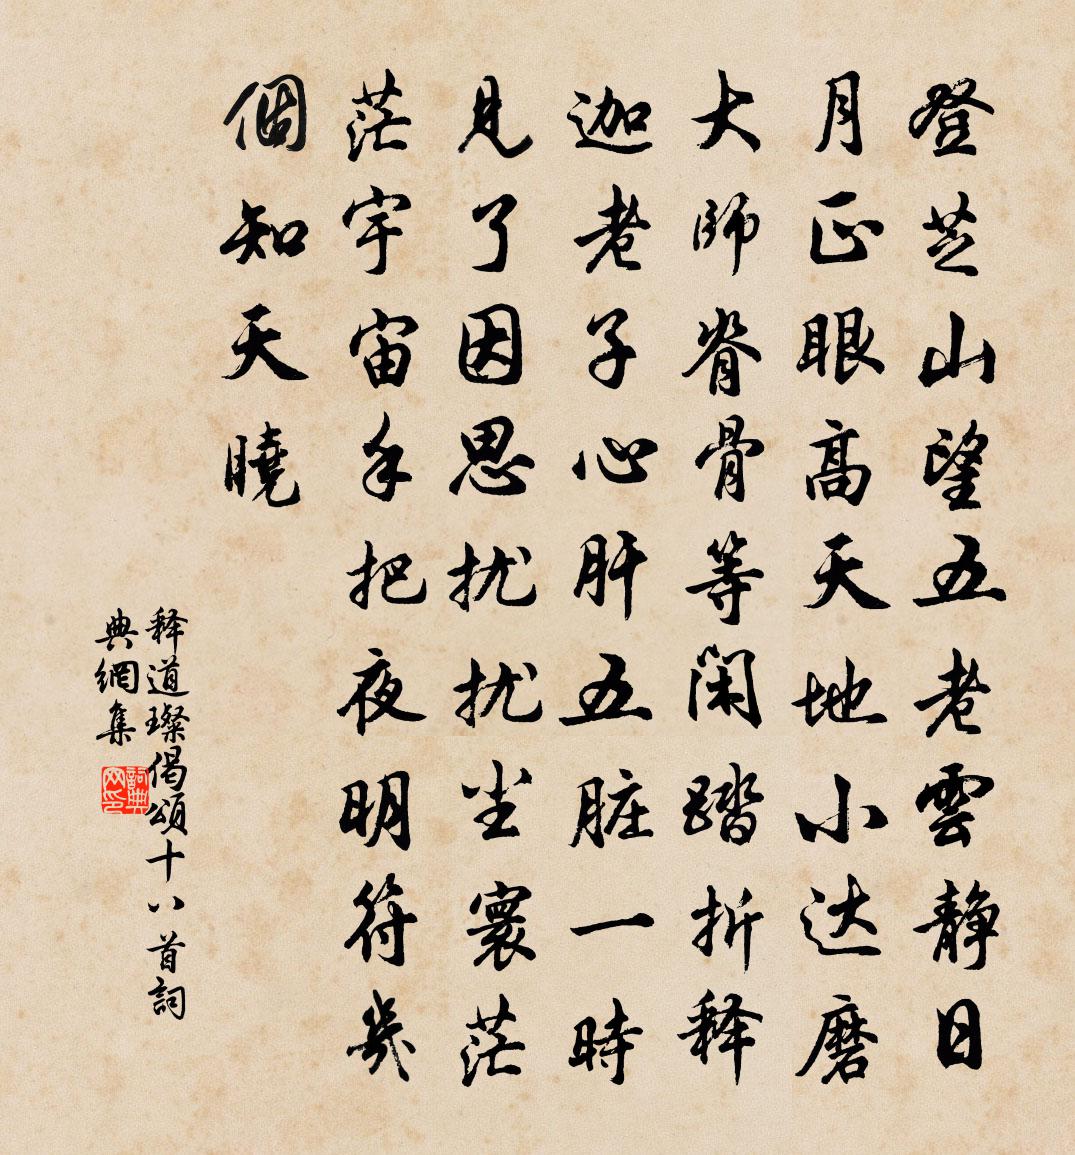 登芝山望五老雲静日
月正眼高天地小达磨
大師脊骨等闲踏折释
迦老子心肝五脏一時
見了因思扰扰尘寰茫
茫宇宙手把夜明符幾
個知天曉
释道璨偈頌十八首詞
典網集
詞典网印